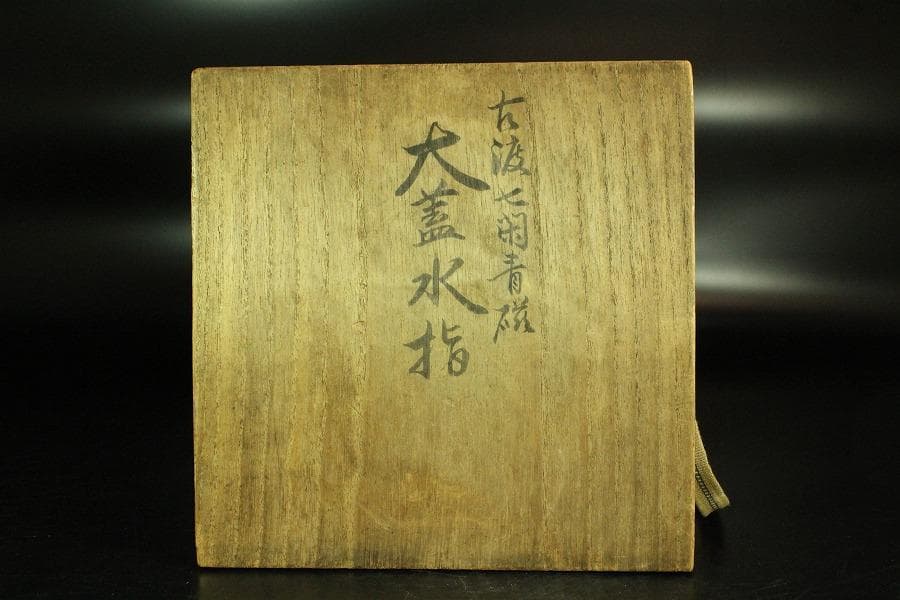 古渡七閑青磁
大蓋水指